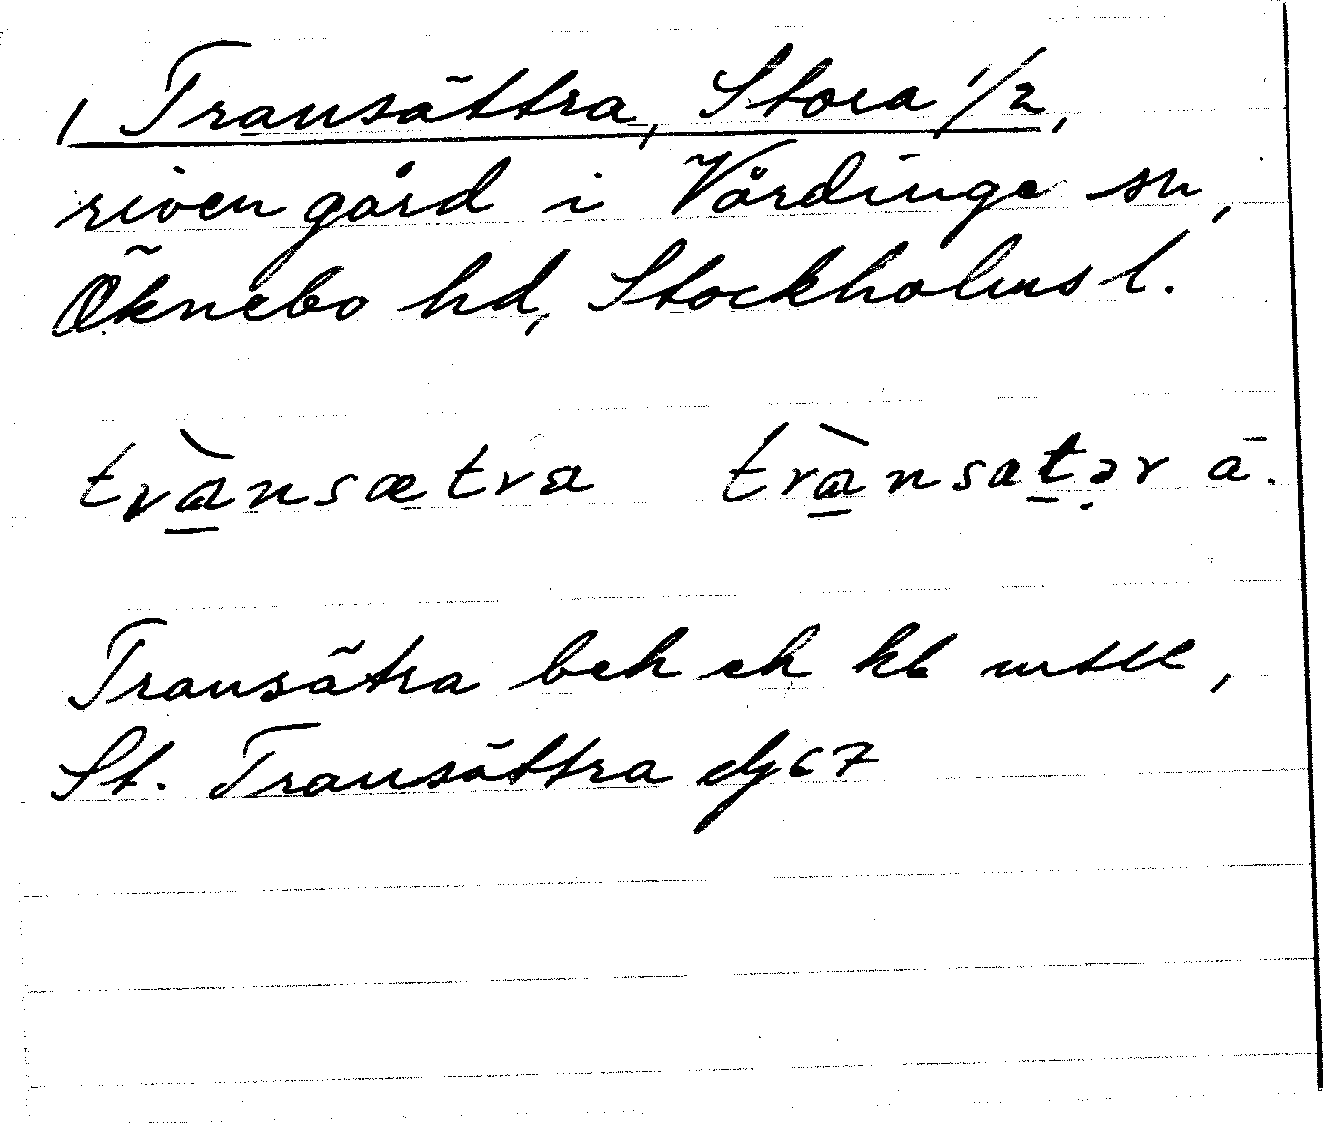 / Transättra, Stora 1/2,
riven gård i Vårdinge sn,
Öknebo hd, Stockholms l.
trànsætra trànsætər ā.
Transätra beh eh kb mtll,
St. Transättra dy 67